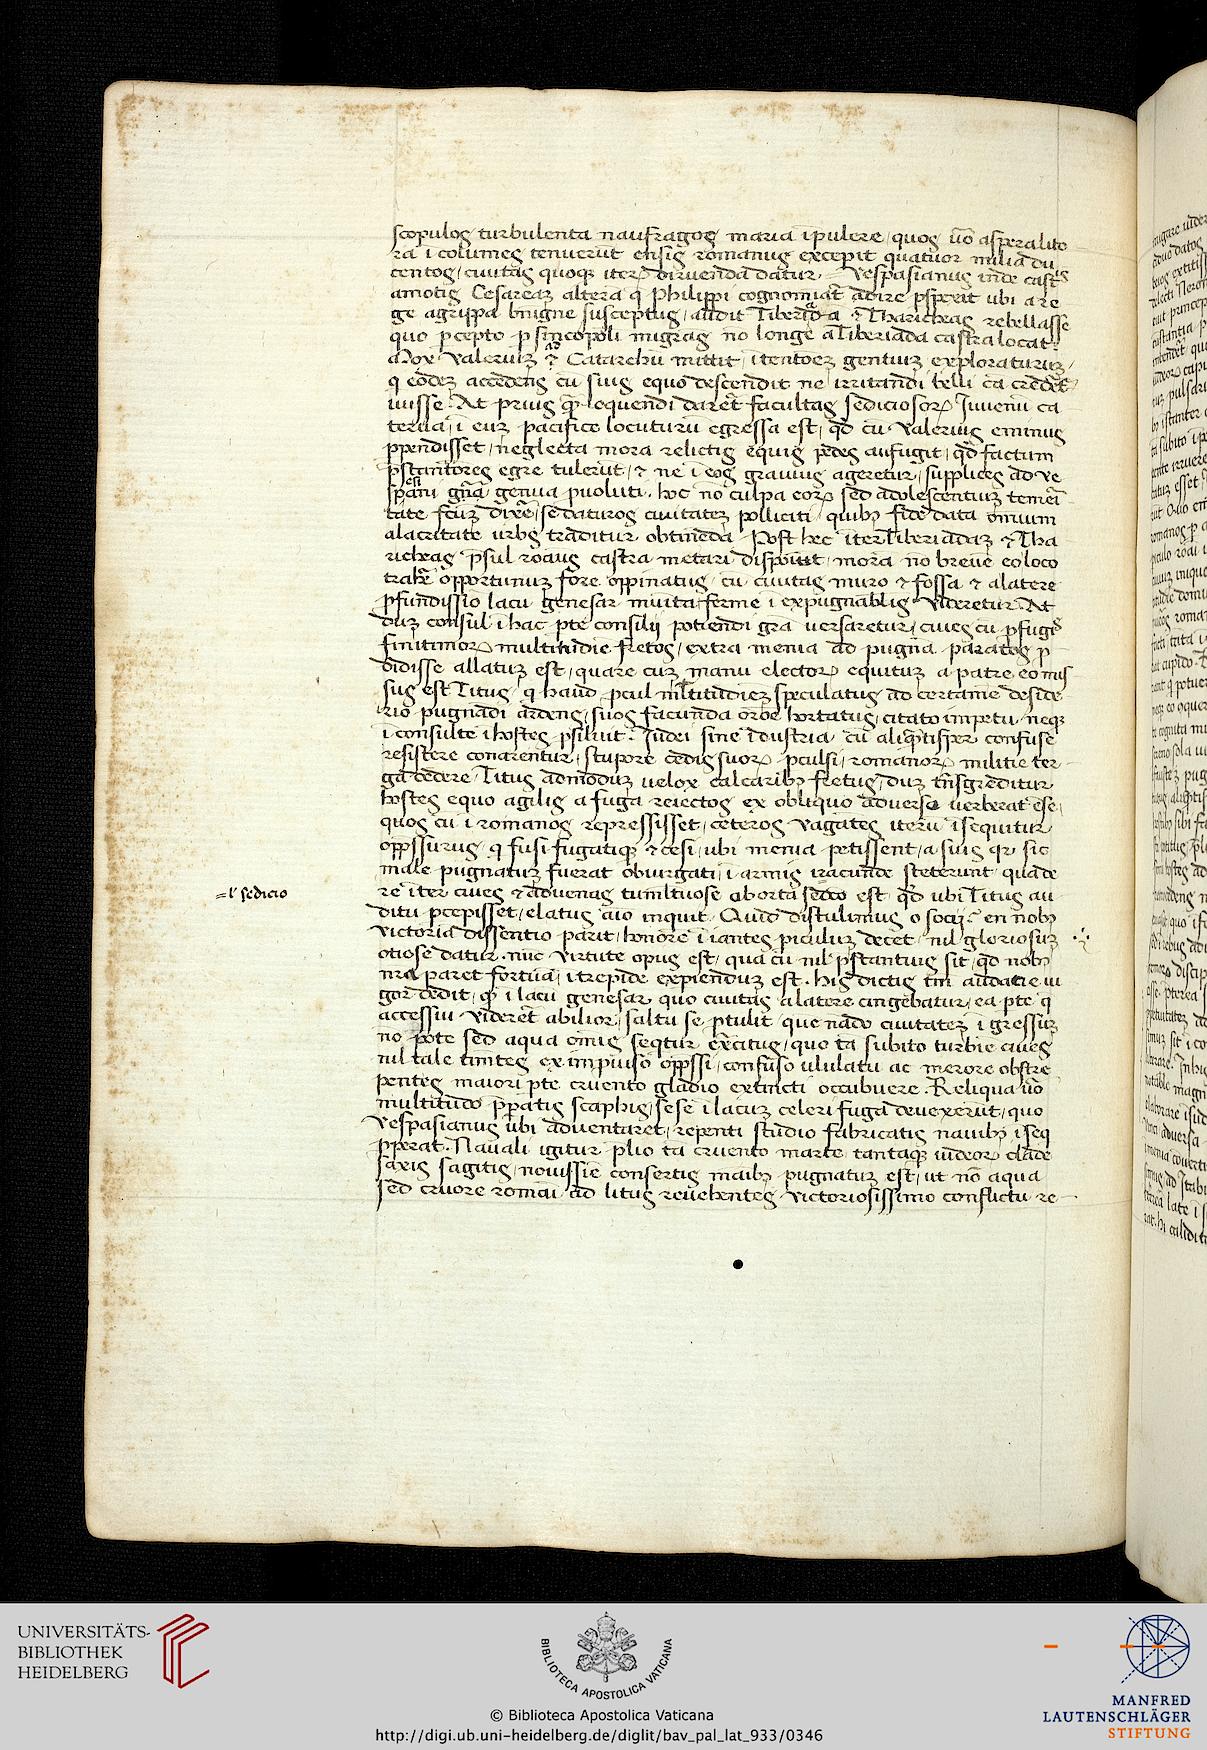 scopulos turbulenta naufragos maria īpulere, quos ūo aspera lito
ra īcolumes tenuerūt ensis romanus excepit quatuor milia du
centos, civitas quoqꝫ iteꝝ diruenda datur. Vespasianus inde castris
amotis Cesareaꝫ altera q̄ Philippi cognomiat̄ adire pspexit ubi a re
ge agrippa bnigne susceptus, audit Tiberiada ⁊ Tharicheas rebellasse
quo pcepto sincopoli migrās nō longe a Tiberiada castra locat.
Mox Valeriuꝫ Catarchū mittit, ītentoeꝫ gentiuꝫ exploraturuꝫ,
q̄ eodeꝫ accedens cū suis equo descendit ne irritandi belli cā credet̄
iuisse. At prius q̄ loquendi daret̄ facultas sediciosoꝯ Juvenū ca
terua, ī euꝫ pacifice locuturū egressa est, qd̄ cū Valerius eminus
ppendisset, neglecta mora relictis equis pedes aufugit, qd̄ factum
pstantiores egre tulerūt, ⁊ ne ī eos gravius ageretur, supplices ad ve
spaāni genua pvoluti. hoc nō culpa eoꝝ sed adolescentiuꝫ temeri
tate fcuꝫ dixere, se daturos civitateꝫ polliciti, quibꝫ fide data omium
alacritate urbs traditur obtinēda. Post hec iter Tiberiadaꝫ ⁊ Tha
richeas psul roānus castra metari disponit, mora nō breve eo loco
trahē opportunuꝫ fore oppinatus, cū civitas muro ⁊ fossa ⁊ a latere
pfundissīo lacu genesar munita ferme ī expugnabilis videretur. At
duꝫ consul ī hac pte consilij potiendi grā versaretur, cives cū pfugis
finitimoꝝ multitudīe fretos, extra menia ad pugnā paratos p
didisse allatuꝫ est, quare cuꝫ manu electoꝝ equituꝫ a patre eo mis
sus est Titus, q̄ haud pcul multitudineꝫ speculatus ad certamē deside
rio pugnādi ardens, suos facunda orōe hortatus, citato impetu neqꝫ
īconsulte ī hostes psiluit. Judei sine īdustria cū aliqātisper confuse
resistere conarentur, stupore cedis suoꝝ pculsi, romanoꝝ militie ter
ga cedere, Titus admoduꝫ velox calcaribꝫ fretus, duꝫ trāsgreditur
hostes equo agilis a fuga reiectos ex obliquo adverso verberat ēse,
quos cū ī romanos repressisset, ceteros vagātes iterū īsequitur
oppssurus, q̄ fusi fugatiqꝫ ⁊ cesi, ubi menia petissent, a suis qr sic
male pugnatuꝫ fuerat obiurgati, ī armis iracunde steterunt quāde
re iter cives ⁊ advenas tumltuose aborta est qd̄ ubi Titus au
ditu pcepisset, elatus aīo inquit. Quid distulimus o socij? en nobꝫ
victoriā dissentio parit, honore īiantes piculuꝫ decet, nil gloriosuꝫ
otiose datur. nūc virtute opus est, qua cū nil pstantius sit, qd̄ nobꝫ
nrā paret fortuā, ītrepide expienduꝫ est. His dictis tm̄ audatie vi
gor dedit, q̄ ī lacū genesar quo civitas a latere cingebatur, ea pte q̄
accessui videret̄ abilior, saltu se ptulit que nādo civitateꝫ ī gressuꝫ
nō pote sed aqua omis seqtur exercitus, quo tā subito turbīe cives
nil tale timētes ex improviso oppssi, confuso ululatu ac merore obstre
pentes maiori pte cruento gladio extincti occubuere. Reliqua ūo
multitudo ppatis scaphis, sese ī lacuꝫ celeri fuga devexerūt, quo
Vespasianus ubi adventaret, repenti studio fabricatis navibꝫ īseq
pperat. Navali igitur plio tā cruento marte, tantaqꝫ iudeoꝝ clade
saxis sagitis, novissīe consertis maībꝫ pugnatuꝫ est, ut nō aqua
sed cruore romāi ad litus revehentes victoriosissimo conflictu re
=l' sedicio
UNIVERSITÄTS-
BIBLIOTHEK
HEIDELBERG
BIBLIOTECA APOSTOLICA VATICANA
© Biblioteca Apostolica Vaticana
http://digi.ub.uni-heidelberg.de/diglit/bav_pal_lat_933/0346
MANFRED
LAUTENSCHLÄGER
STIFTUNG